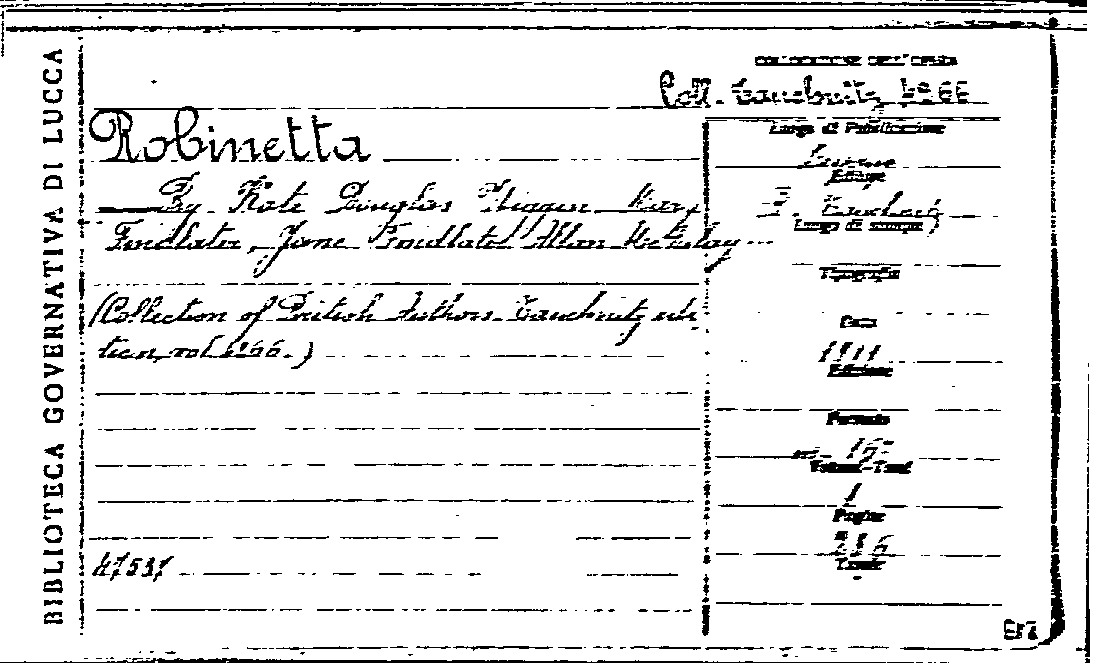 BIBLIOTECA GOVERNATIVA DI LUCCA
COLLOCAZIONE DELL'OPERA
Coll. Tauchnitz 4266
Robinetta
By Kate Douglas Wiggin Mary
Findlater, Jane Findlater, Allan McAulay
(Collection of British Authors Tauchnitz edi-
tion, vol 4266.)
47537
Luogo di Pubblicazione
Editore
B. Tauchnitz
Luogo di stampa
Tipografia
Data
1911
Edizione
Formato
in 16°
Volumi-Tomi
1
Pagine
Tavole